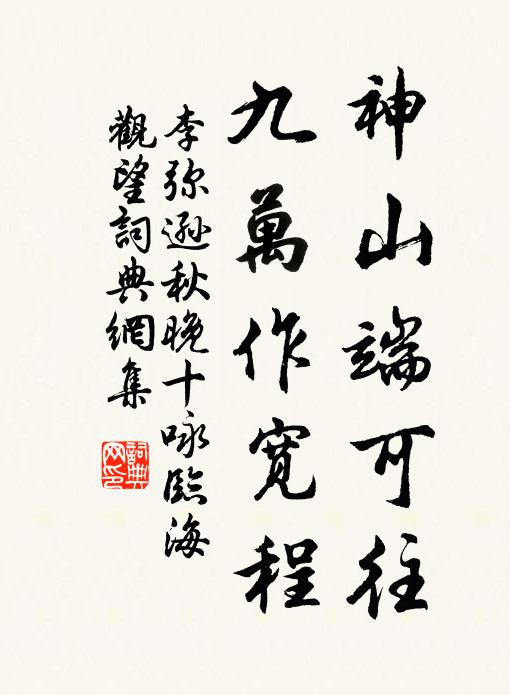 神山端可往
九萬作寬程
李弥遜秋晚十咏臨海
觀望詞典網集
詞典網印